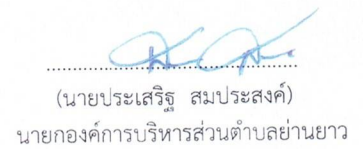 (นายประเสริฐ สมประสงค์)
นายกองค์การบริหารส่วนตำบลย่านยาว